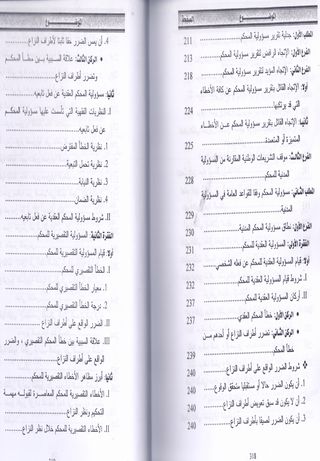 الموضوع الصفحة
المطلب الأول: جدلية تقرير مسؤولية المحكم 211
الفرع الأول: الإتجاه الرافض لتقرير مسؤولية المحكم 213
الفرع الثاني: الإتجاه المؤيد لتقرير مسؤولية المحكم 218
أولا: الإتجاه القائل بتقرير مسؤولية المحكم عن كافة الأخطاء
التي قد يرتكبها 224
ثانيا: الإتجاه القائل بتقرير مسؤولية المحكم عن الأخطاء
المتميزة أو المتعمدة 225
الفرع الثالث: موقف التشريعات الوطنية المقارنة من المسؤولية
المدنية للمحكم 228
المطلب الثاني: مسؤولية المحكم وفقا للقواعد العامة في المسؤولية
المدنية 229
الفرع الأول: نطاق مسؤولية المحكم المدنية 230
الفقرة الأولى: المسؤولية العقدية للمحكم 231
أولا: قيام المسؤولية العقدية للمحكم عن فعله الشخصي 232
I. شروط قيام المسؤولية العقدية للمحكم 232
II. أركان المسؤولية العقدية للمحكم 237
• الركن الأول: خطأ المحكم العقدي 237
• الركن الثاني: تضرر أطراف النزاع أو أحدهم من
خطأ المحكم 239
❖ شروط الضرر الواقع على أطراف النزاع 240
1. أن يكون الضرر حالا أو مستقبليا متحقق الوقوع 240
2. أن لا يكون قد سبق تعويض أطراف النزاع 240
3. أن يكون الضرر لصيقا بأطراف النزاع 240
318
الموضوع
4. أن يمس الضرر حقا ثابتا لأطراف النزاع
• الركن الثالث: علاقة السببية بين خطأ المحكم
وتضرر أطراف النزاع
ثانيا: مسؤولية المحكم العقدية عن فعل تابعيه
I. النظريات الفقهية التي تأسست عليها مسؤولية المحكم
عن فعل تابعيه
1. نظرية الخطأ المفترض
2. نظرية تحمل التبعة
3. نظرية النيابة
4. نظرية الضمان
II. شروط مسؤولية المحكم العقدية عن فعل تابعيه
الفقرة الثانية: المسؤولية التقصيرية للمحكم
أولا: قيام المسؤولية التقصيرية للمحكم
I. الخطأ التقصيري للمحكم
1. معيار الخطأ التقصيري للمحكم
2. درجة الخطأ التقصيري للمحكم
II. الضرر الواقع على أطراف النزاع
III. علاقة السببية بين خطأ المحكم التقصيري، والضرر
الواقع على أطراف النزاع
ثانيا: أبرز مظاهر الأخطاء التقصيرية للمحكم
I. الأخطاء التقصيرية للمحكم المعاصرة لقبوله مهمة
التحكيم ونظر النزاع
II. الأخطاء التقصيرية للمحكم خلال نظر النزاع